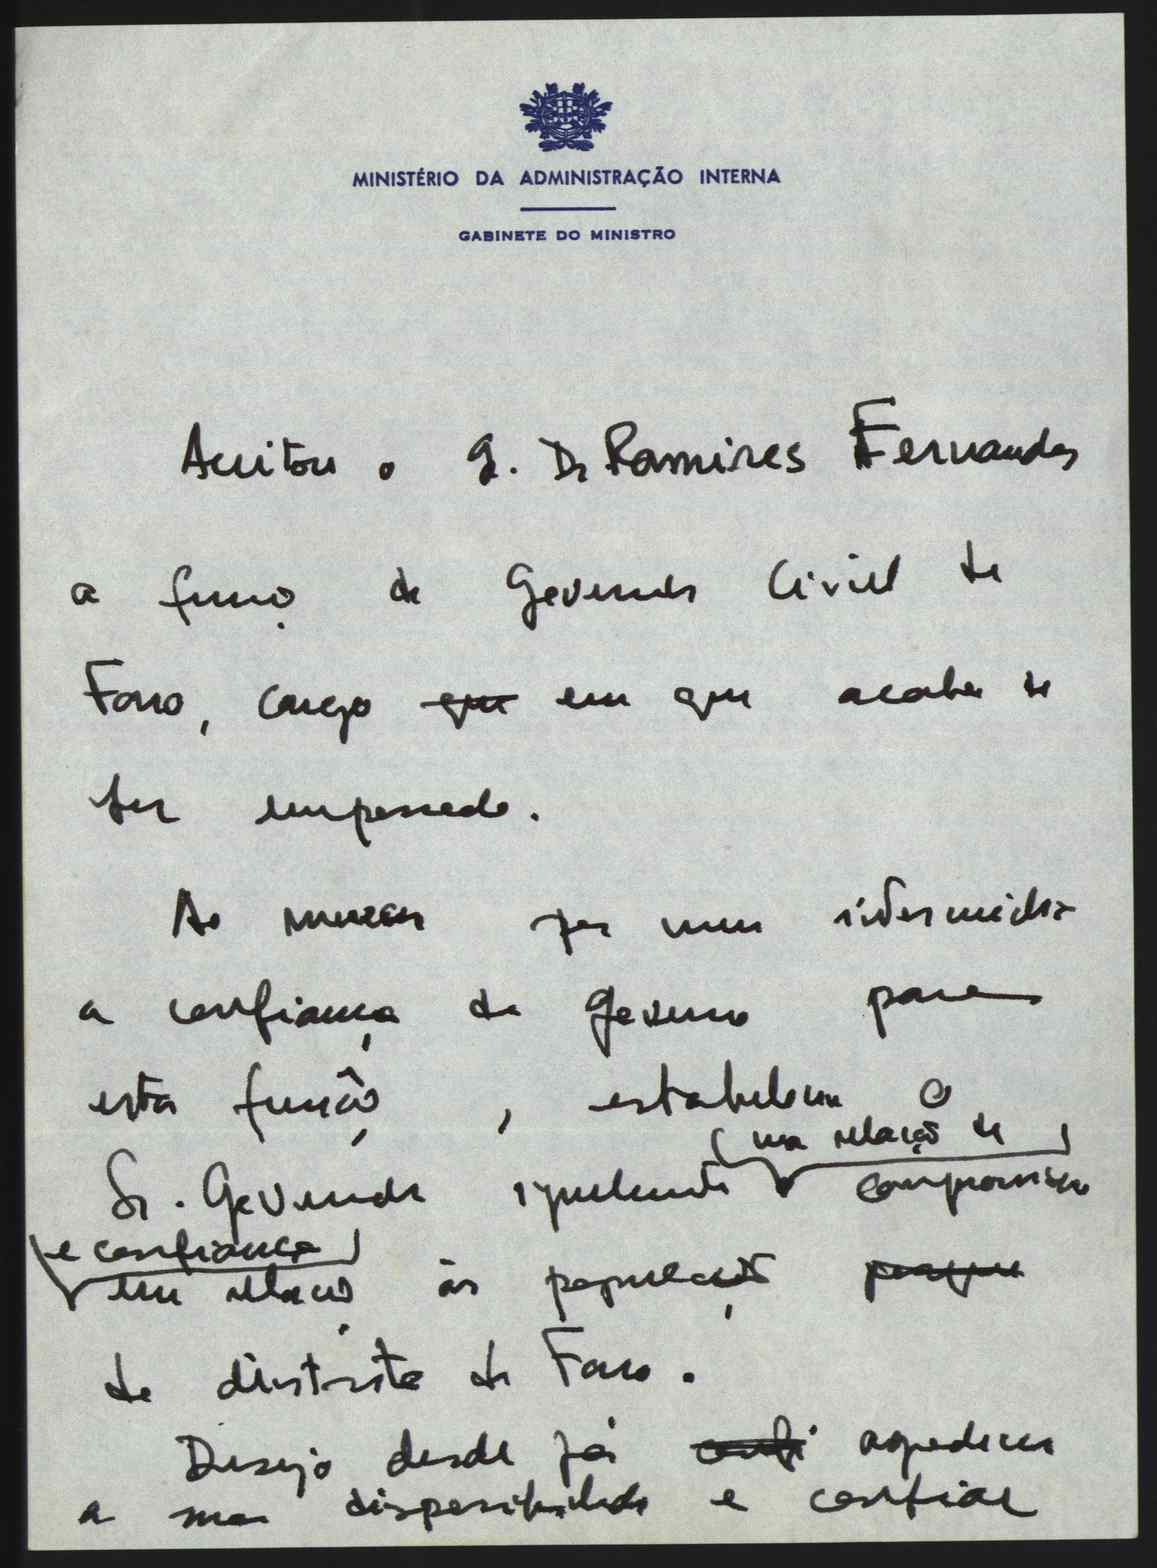 MINISTÉRIO DA ADMINISTRAÇÃO INTERNA
GABINETE DO MINISTRO
Aceitou o S. Dr Ramires Fernandes
a função de Governador Civil de
Faro, cargo que em que acaba de
ser empossado.
Ao merecer por meu intermédio
a confiança do Governo para
esta função, estabelece o
(uma relação de)
Sr. Governador igualmente compromisso
(e confiança)
em relação às populações porque
do distrito de Faro.
Desejo desde já confi agradecer
a sua disponibilidade e confiar